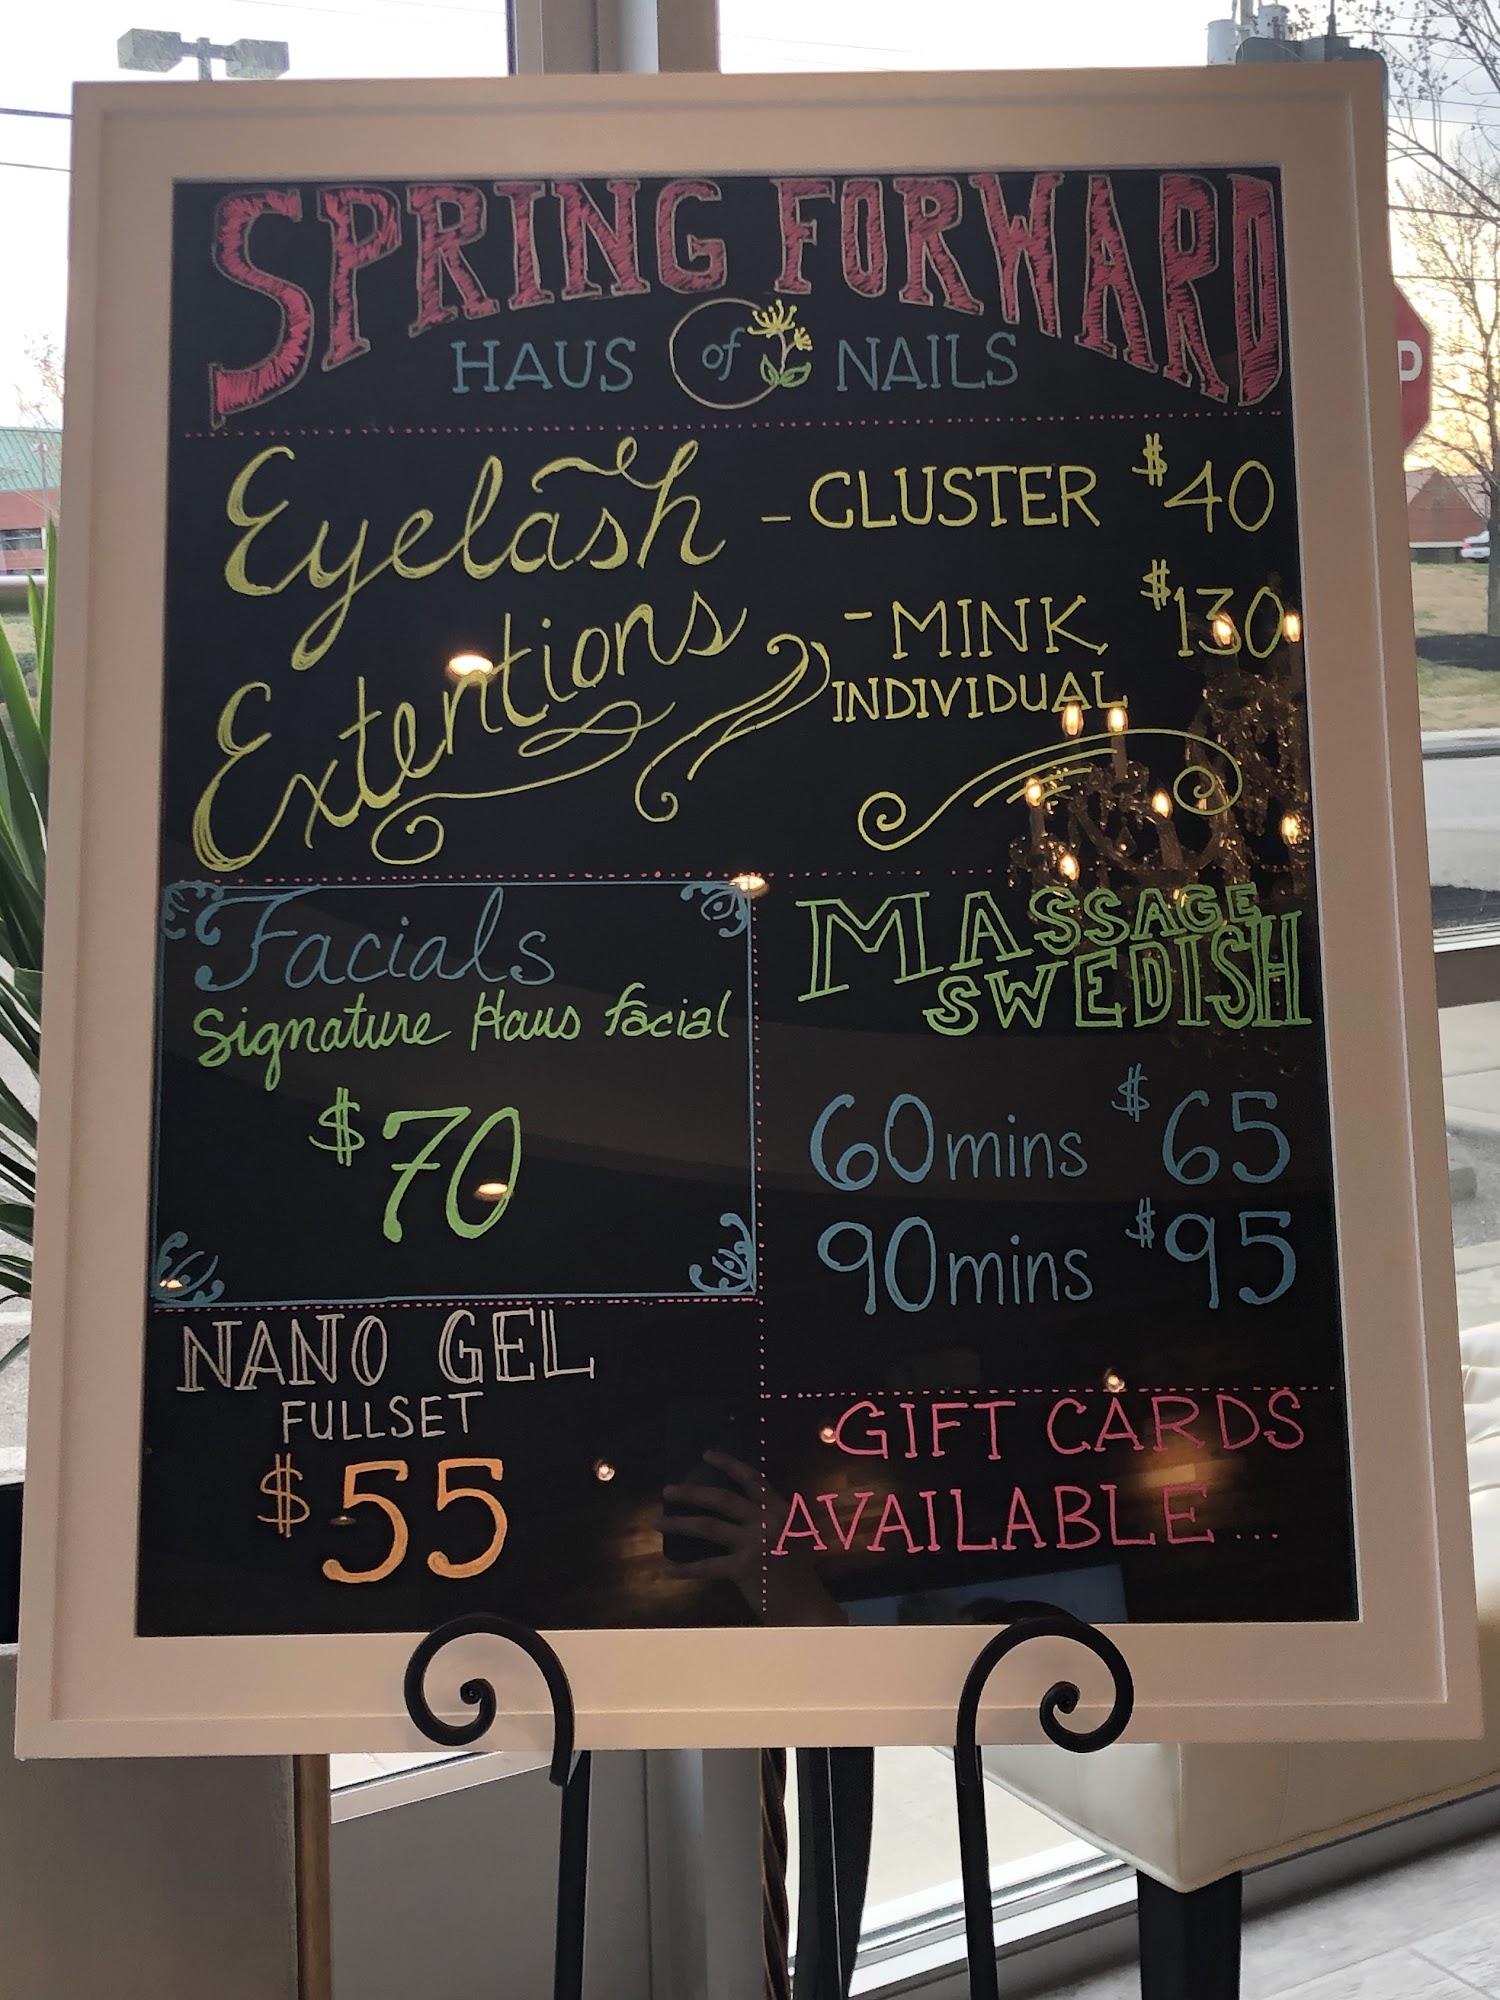 SPRING FORWARD
HAUS of NAILS
Eyelash
Extentions
- CLUSTER $40
- MINK $130
INDIVIDUAL
Facials
Signature Haus facial
$70
MASSAGE
SWEDISH
60mins $65
90mins $95
NANO GEL
FULLSET
$55
GIFT CARDS
AVAILABLE...
P